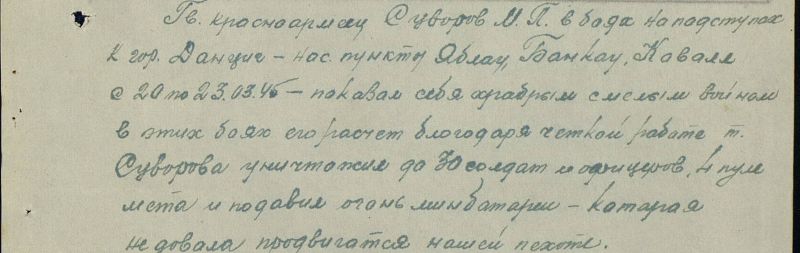 Гв. красноармеец Суворов М. П. в боях на подступах
к гор. Данциг – нас. пункты Яблау, Банкау, Кавале
с 20 по 23.03.45 – показал себя храбрым смелым воином
в этих боях его расчет благодаря четкой работе т.
Суворова уничтожил до 30 солдат и офицеров, 4 пуле
мета и подавил огонь минбатареи – катарая
не довала продвигатся нашей пехоте.